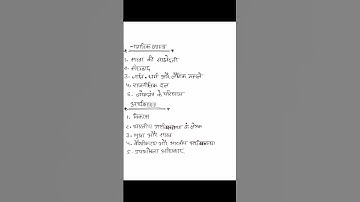 1. सत्ता की साझेदारी
2. संघवाद
3. जाति, धर्म और लैंगिक मसले
4. राजनीतिक दल
5. लोकतंत्र के परिणाम
अर्थशास्त्र
1. विकास
2. भारतीय अर्थव्यवस्था के क्षेत्रक
3. मुद्रा और साख
4. वैश्वीकरण और भारतीय अर्थव्यवस्था
5. उपभोक्ता अधिकार